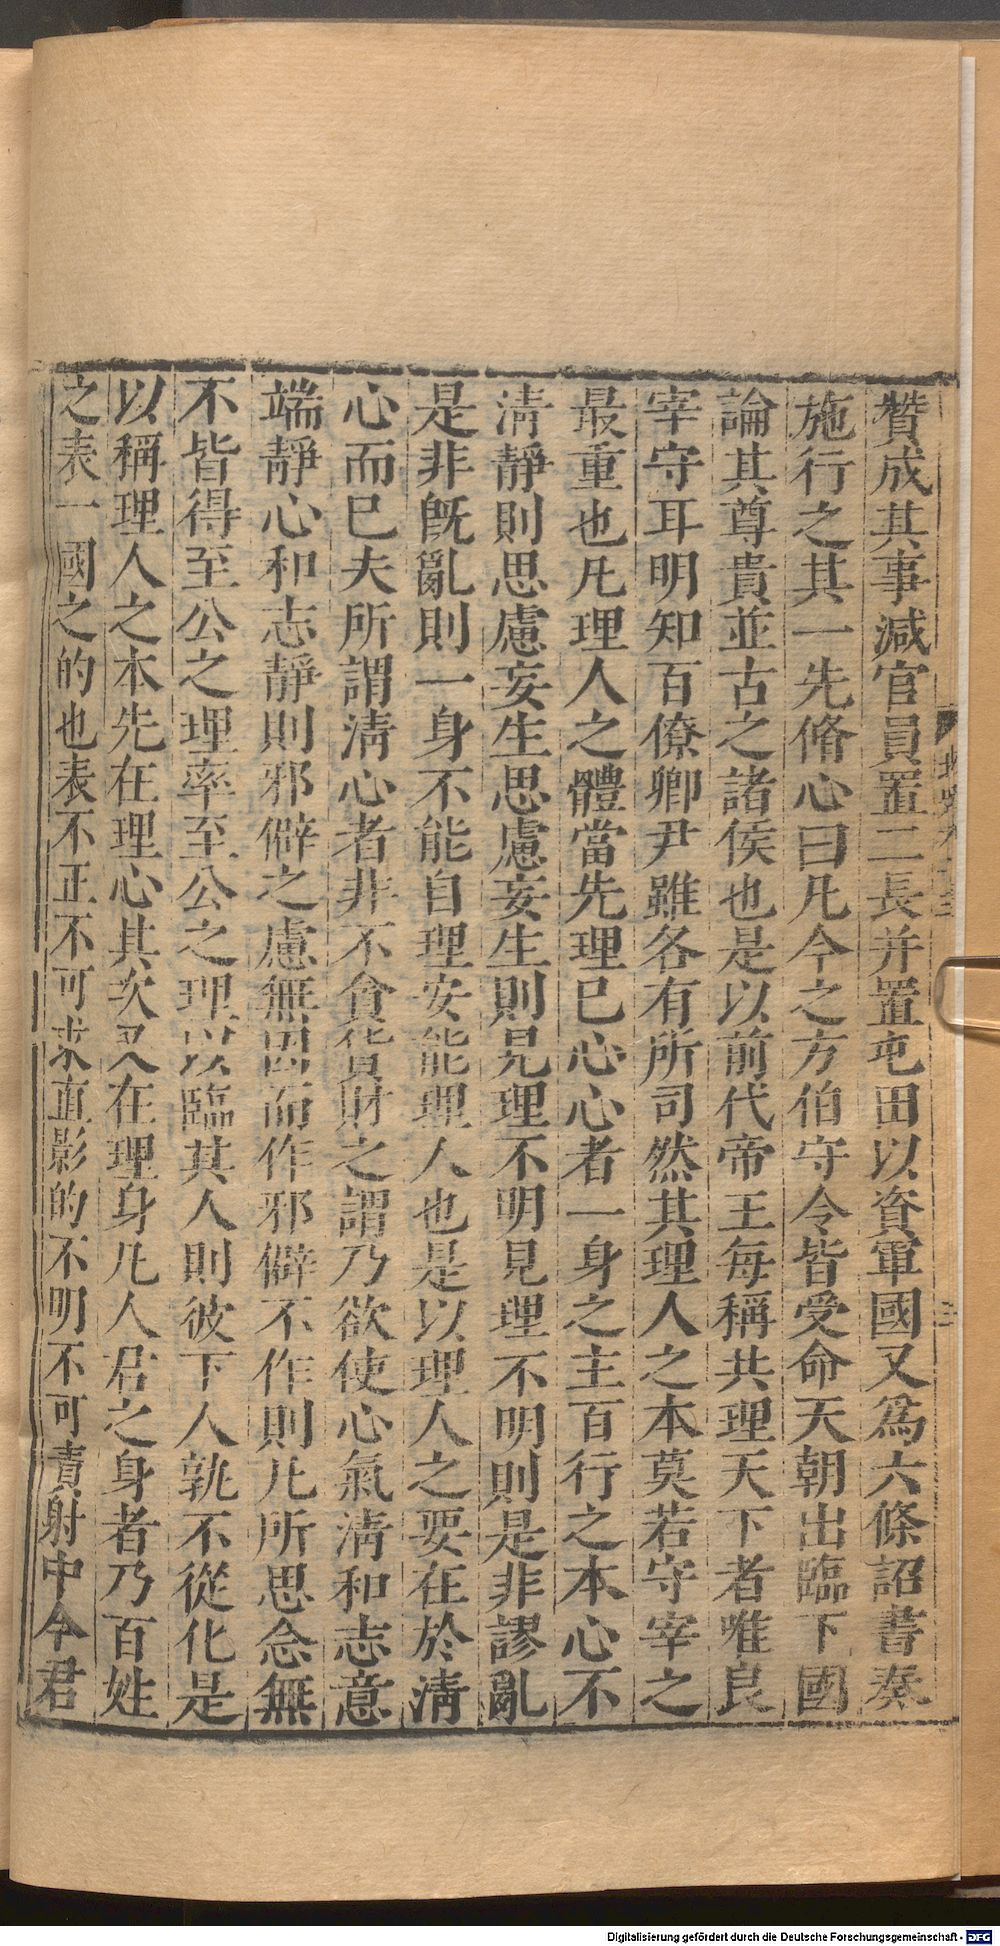 贊成其事減官員置二長并置屯田以資軍國又爲六條詔書奏
施行之其一先脩心曰凡今之方伯守令皆受命天朝出臨下國
論其尊貴並古之諸侯也是以前代帝王每稱共理天下者唯良
宰守耳明知百僚卿尹雖各有所司然其理人之本莫若守宰之
最重也凡理人之體當先理已心心者一身之主百行之本心不
淸靜則思慮妄生思慮妄生則見理不明見理不明則是非謬亂
是非旣亂則一身不能自理安能理人也是以理人之要在於淸
心而已夫所謂淸心者非不貪貨財之謂乃欲使心氣淸和志意
端靜心和志靜則邪僻之慮無因而作邪僻不作則凡所思念無
不皆得至公之理率至公之理以臨其人則彼下人孰不從化是
以稱理人之本先在理心其次又在理身凡人君之身者乃百姓
之表一國之的也表不正不可求直影的不明不可責射中今君
Digitalisierung gefördert durch die Deutsche Forschungsgemeinschaft - DFG